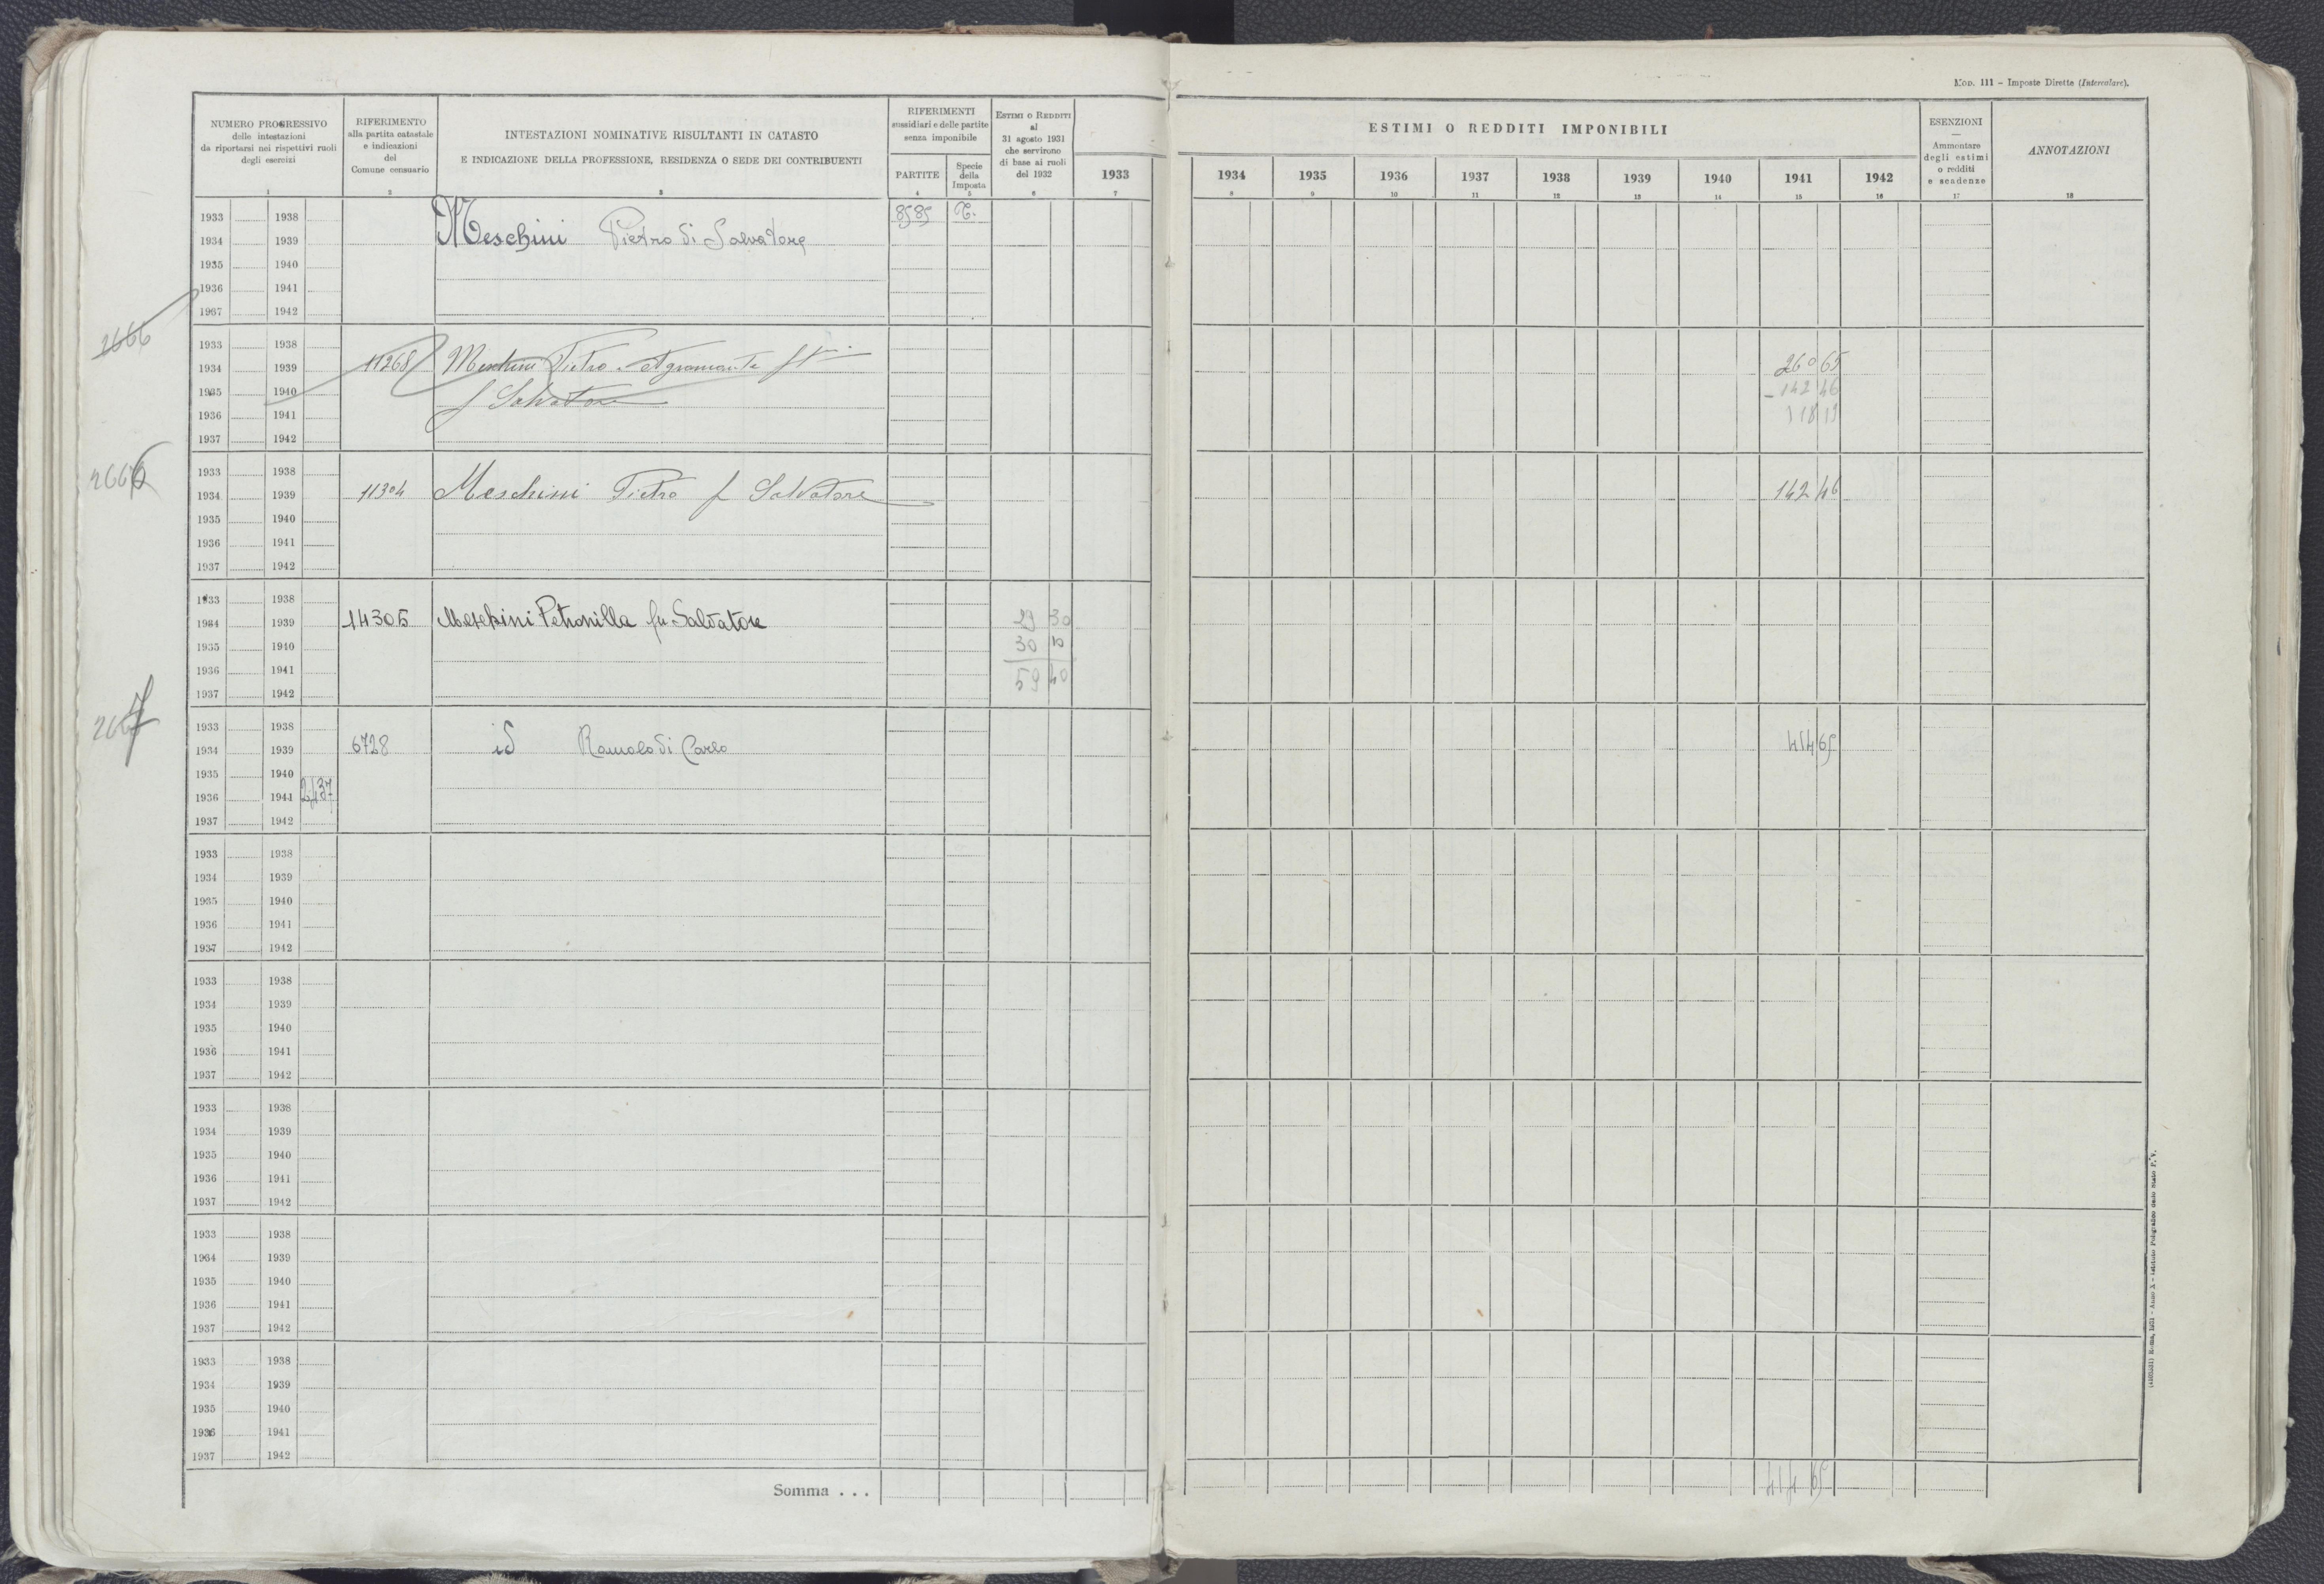 MOD. 111 – Imposte Dirette (Intercalare).
NUMERO PROGRESSIVO
delle intestazioni
da riportarsi nei rispettivi ruoli
degli esercizi
1
RIFERIMENTO
alla partita catastale
e indicazioni
del
Comune censuario
2
INTESTAZIONI NOMINATIVE RISULTANTI IN CATASTO
E INDICAZIONE DELLA PROFESSIONE, RESIDENZA O SEDE DEI CONTRIBUENTI
3
RIFERIMENTI
sussidiari e delle partite
senza imponibile
PARTITE
4
Specie
della
Imposta
5
ESTIMI O REDDITI
al
31 agosto 1931
che servirono
di base ai ruoli
del 1932
6
1933
7
ESTIMI O REDDITI IMPONIBILI
1934 1935 1936 1937 1938 1939 1940 1941 1942
8 9 10 11 12 13 14 15 16
ESENZIONI
—
Ammontare
degli estimi
o redditi
e scadenze
17
ANNOTAZIONI
18
1933 1938 8585 T.
1934 1939 Meschini Pietro di Salvatore
1935 1940
1936 1941
1937 1942
2666
1933 1938
1934 1939 11268 Meschini Pietro e Agramante f 260 65
1935 1940 f Salvatore - 142 46
1936 1941 118 19
1937 1942
2666
1933 1938
1934 1939 11304 Meschini Pietro f Salvatore 142 46
1935 1940
1936 1941
1937 1942
1933 1938
1934 1939 14305 Meschini Petronilla fu Salvatore 29 30
1935 1940 30 10
1936 1941 59 40
1937 1942
2667
1933 1938
1934 1939 6728 id Romolo di Carlo 414 65
1935 1940
1936 1941 2437
1937 1942
1933 1938
1934 1939
1935 1940
1936 1941
1937 1942
1933 1938
1934 1939
1935 1940
1936 1941
1937 1942
1933 1938
1934 1939
1935 1940
1936 1941
1937 1942
1933 1938
1934 1939
1935 1940
1936 1941
1937 1942
1933 1938
1934 1939
1935 1940
1936 1941
1937 1942
Somma . . . 414 65
Roma, 1931 - Anno X - Istituto Poligrafico dello Stato P. V.